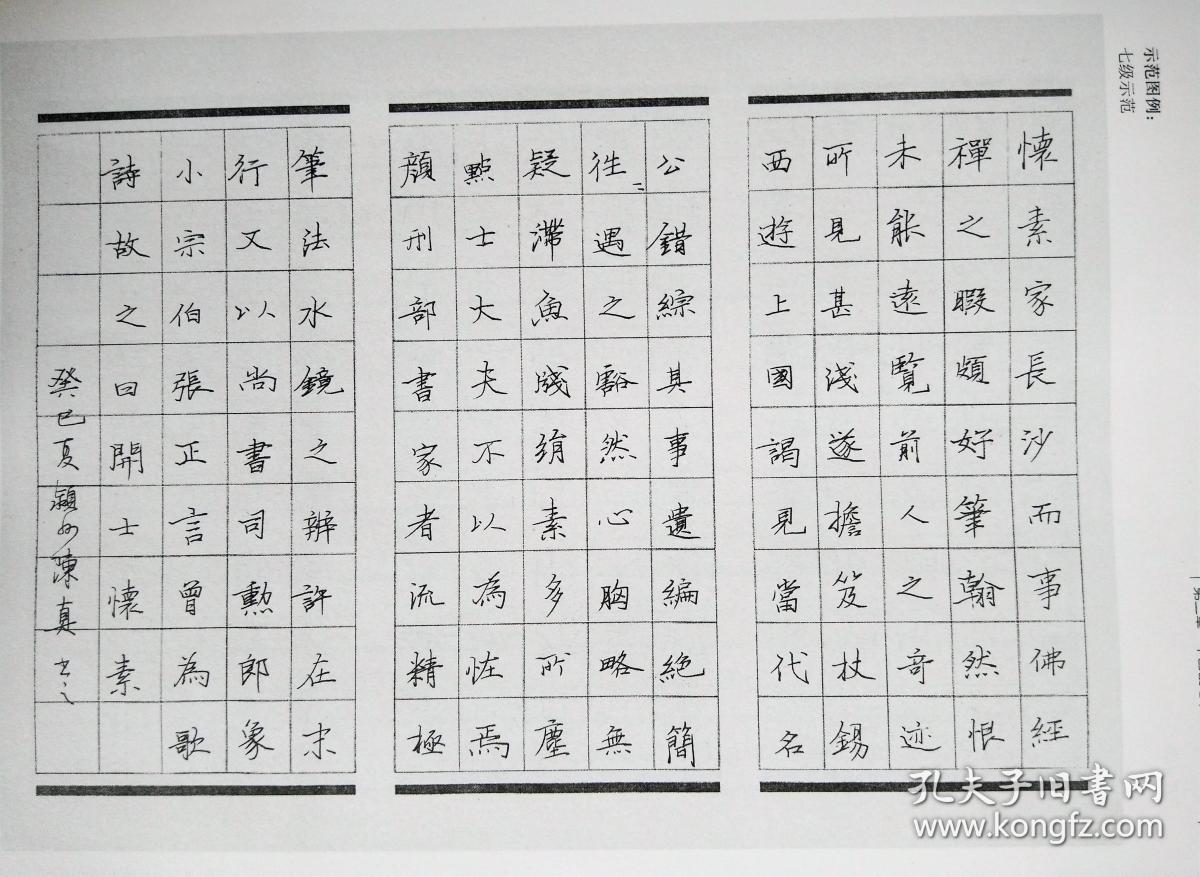 示范图例：
七级示范
懷素家長沙而事佛經
禪之暇頗好筆翰然恨
未能遠覽前人之奇迹
所見甚淺遂擔笈杖錫
西遊上國謁見當代名
公錯綜其事遺編絕簡
徃〻遇之豁然心胸略無
疑滯魚牋絹素多所塵
點士大夫不以為怪焉
顏刑部書家者流精極
筆法水鏡之辨許在末
行又以尚書司勲郎象
小宗伯張正言曾為歌
詩故之曰開士懷素
癸巳夏潁州陳真书之
孔夫子旧书网
www.kongfz.com